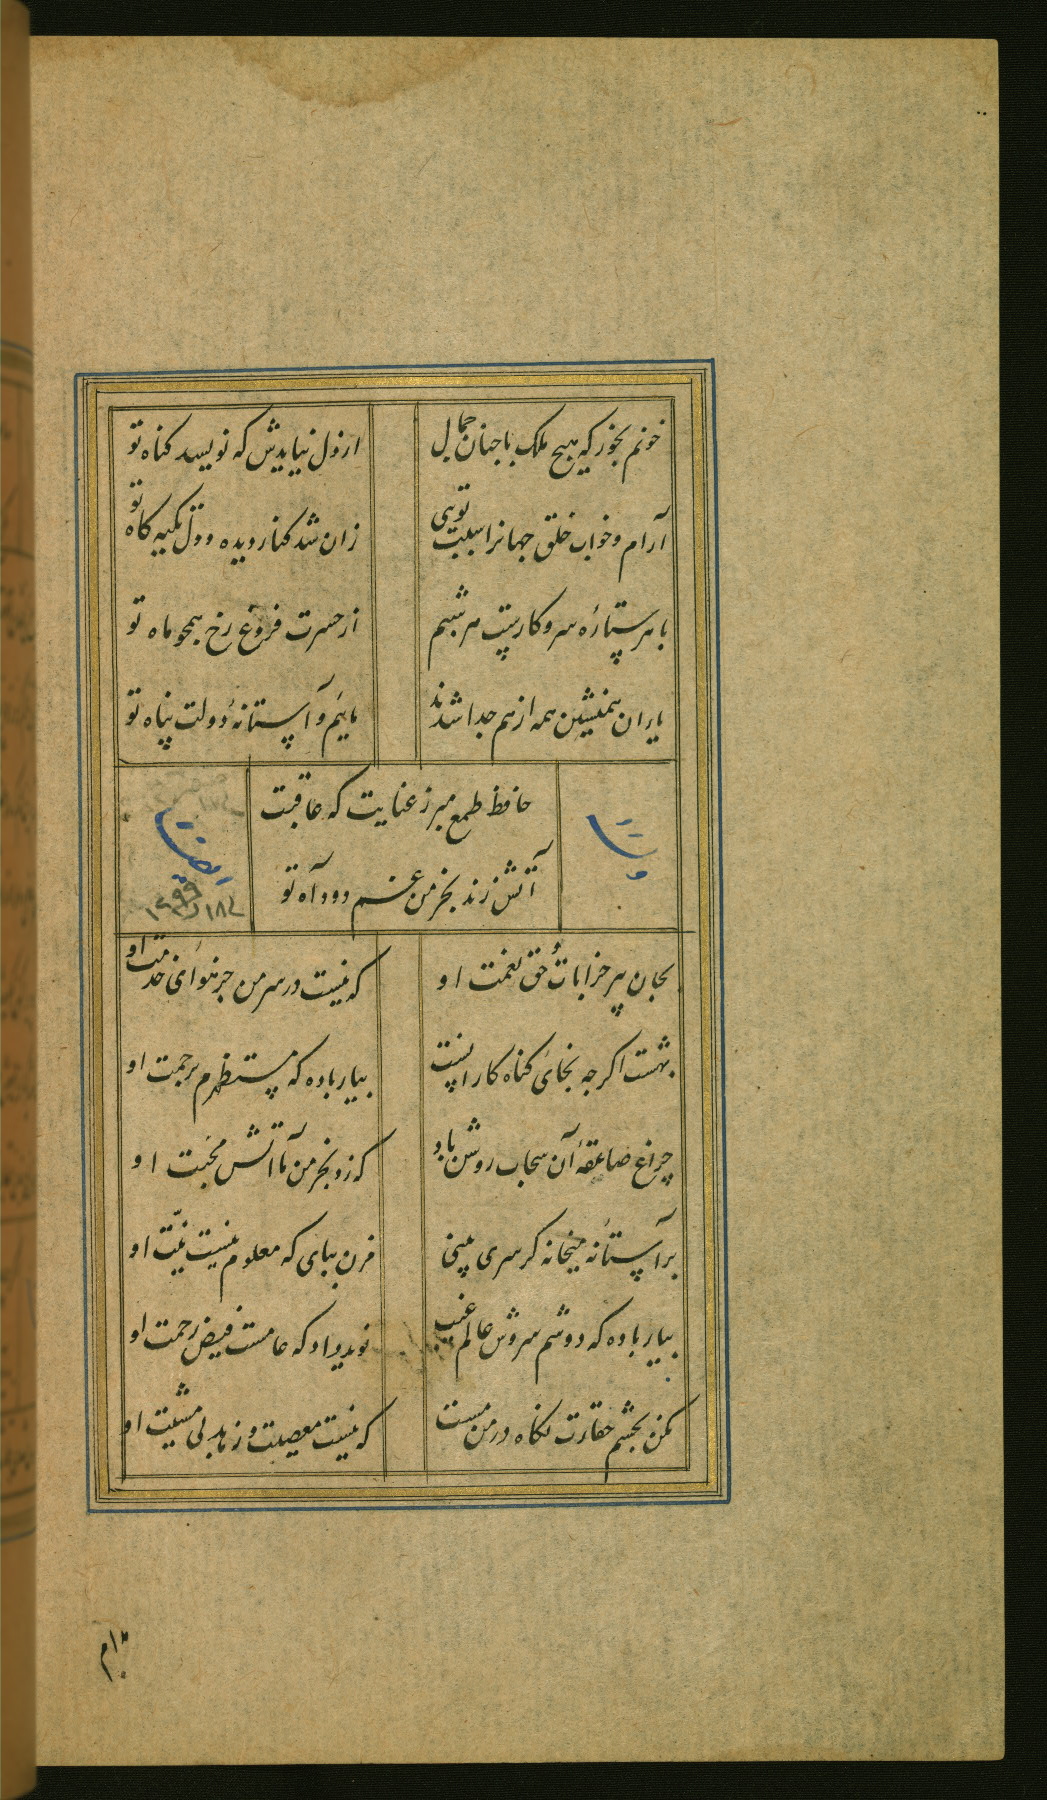 خونم بخور که هیچ ملک با چنان جمال
از دل نیایدش که نویسد کناه تو
آرام و خواب خلق جهانرا سبب تویی
زان شد کنار دیده و دل تکیه کاه تو
با هر ستارهٔ سر و کاریست هر شبم
از حسرت فروغ رخ همچو ماه تو
یاران همنشین همه از هم جدا شدند
مائیم و آستانهٔ دولت پناه تو
حافظ طمع مبر ز عنایت که عاقبت
آتش زند بخرمن غم دود آه تو
بجان پیر خرابات و حق نعمت او
که نیست در سر من جز هوای خدمت او
بهشت اکر چه نجای کناه کارانست
بیار باده که مستظهرم برحمت او
چراغ صاعقهٔ آن سحاب روشن باد
که زد بخرمن ما آتش محبت او
بر آستانه میخانه کر سری بینی
مزن بپای که معلوم نیست نیّت او
بیار باده که دوشم سروش عالم غیب
نوید داد که عامست فیض رحمت او
مکن بچشم حقارت نکاه در من مست
که نیست معصیت و زهد بی مشیت او